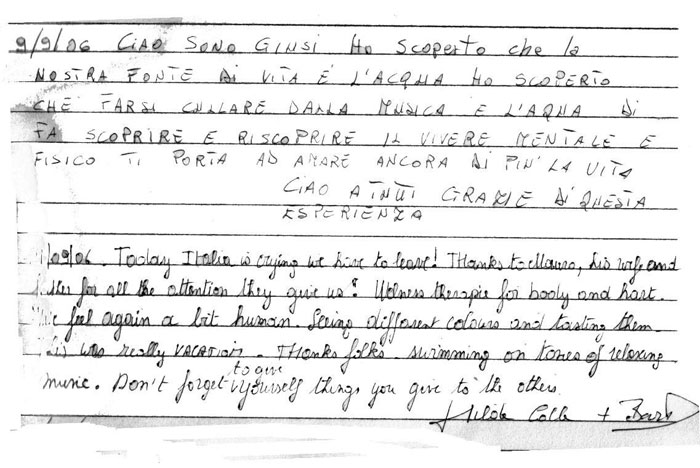 9/9/06 CIAO SONO GIUSI HO SCOPERTO che la
NOSTRA FONTE DI VITA É L'ACQUA HO SCOPERTO
CHE FARSI CULLARE DALLA MUSICA E L'AQUA DI
FA SCOPRIRE E RISCOPRIRE IL VIVERE MENTALE E
FISICO TI PORTA AD AMARE ANCORA DI PIU' LA VITA
CIAO A TUTTI GRAZIE DI QUESTA
ESPERIENZA
/09/06. Today Italia is crying we have to leave! Thanks to Mauro, his wife and
for all the attention they give us! Welness therapie for body and hart.
feel again a bit human. Seeing different colours and tasting them.
was really VACATION. Thanks folks. swimming on tones of relaxing
music. Don't forget to give yourself things you give to the others.
Hilde +